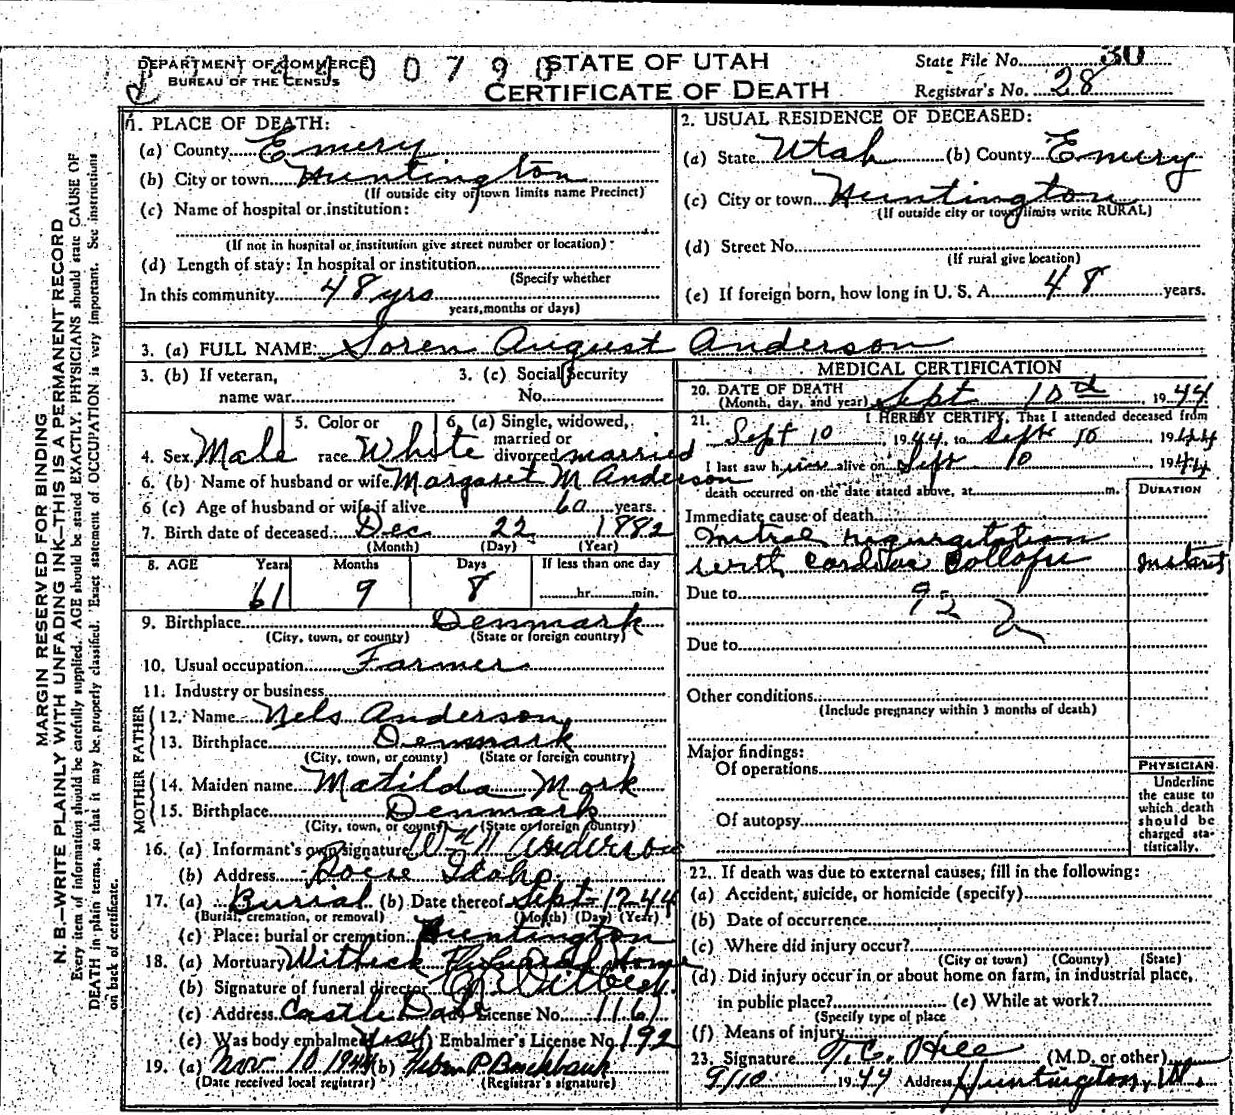 DEPARTMENT OF COMMERCE
BUREAU OF THE CENSUS
4 4 0 0 7 9 0
STATE OF UTAH
CERTIFICATE OF DEATH
State File No. 30
Registrar's No. 28
MARGIN RESERVED FOR BINDING
N. B.—WRITE PLAINLY WITH UNFADING INK—THIS IS A PERMANENT RECORD
Every item of information should be carefully supplied. AGE should be stated EXACTLY. PHYSICIANS should state CAUSE OF
DEATH in plain terms, so that it may be properly classified. Exact statement of OCCUPATION is very important. See instructions
on back of certificate.
1. PLACE OF DEATH:
(a) County Emery
(b) City or town Huntington
(If outside city or town limits name Precinct)
(c) Name of hospital or institution:
(If not in hospital or institution give street number or location)
(d) Length of stay: In hospital or institution
(Specify whether
In this community 48 yrs
years, months or days)
2. USUAL RESIDENCE OF DECEASED:
(a) State Utah (b) County Emery
(c) City or town Huntington
(If outside city or town limits write RURAL)
(d) Street No.
(If rural give location)
(e) If foreign born, how long in U. S. A. 48 years.
3. (a) FULL NAME: Soren August Anderson
3. (b) If veteran,
name war
3. (c) Social Security
No.
4. Sex Male
5. Color or
race White
6. (a) Single, widowed,
married or
divorced married
6. (b) Name of husband or wife Margaret M Anderson
6 (c) Age of husband or wife if alive 60 years.
7. Birth date of deceased Dec 22 1882
(Month) (Day) (Year)
8. AGE Years Months Days If less than one day
61 9 8 hr. min.
9. Birthplace Denmark
(City, town, or county) (State or foreign country)
10. Usual occupation Farmer
11. Industry or business
FATHER
12. Name Nels Anderson
13. Birthplace Denmark
(City, town, or county) (State or foreign country)
MOTHER
14. Maiden name Matilda Mork
15. Birthplace Denmark
(City, town, or county) (State or foreign country)
16. (a) Informant's own signature Anderson
(b) Address Idaho
17. (a) Burial (b) Date thereof Sept 12 44
(Burial, cremation, or removal) (Month) (Day) (Year)
(c) Place: burial or cremation Huntington
18. (a) Mortuary Funeral Home
(b) Signature of funeral director
(c) Address Castle Dale (d) License No. 1161
(e) Was body embalmed Yes (f) Embalmer's License No. 192
19. (a) Nov 10 1944 (b)
(Date received local registrar) (Registrar's signature)
MEDICAL CERTIFICATION
20. DATE OF DEATH
(Month, day, and year) Sept 10th 1944
21. I HEREBY CERTIFY, That I attended deceased from
Sept 10, 1944, to Sept 10 1944
I last saw him alive on Sept 10, 1944
death occurred on the date stated above, at m.
DURATION
Immediate cause of death
Mitral regurgitation
with cardiac collapse Instant
Due to 92
2
Due to
Other conditions
(Include pregnancy within 3 months of death)
Major findings:
Of operations
Of autopsy
PHYSICIAN
Underline
the cause to
which death
should be
charged sta-
tistically.
22. If death was due to external causes, fill in the following:
(a) Accident, suicide, or homicide (specify)
(b) Date of occurrence
(c) Where did injury occur?
(City or town) (County) (State)
(d) Did injury occur in or about home on farm, in industrial place,
in public place? (e) While at work?
(Specify type of place
(f) Means of injury
23. Signature T. C. Hill (M.D. or other)
9/10 1944 Address Huntington, Ut.